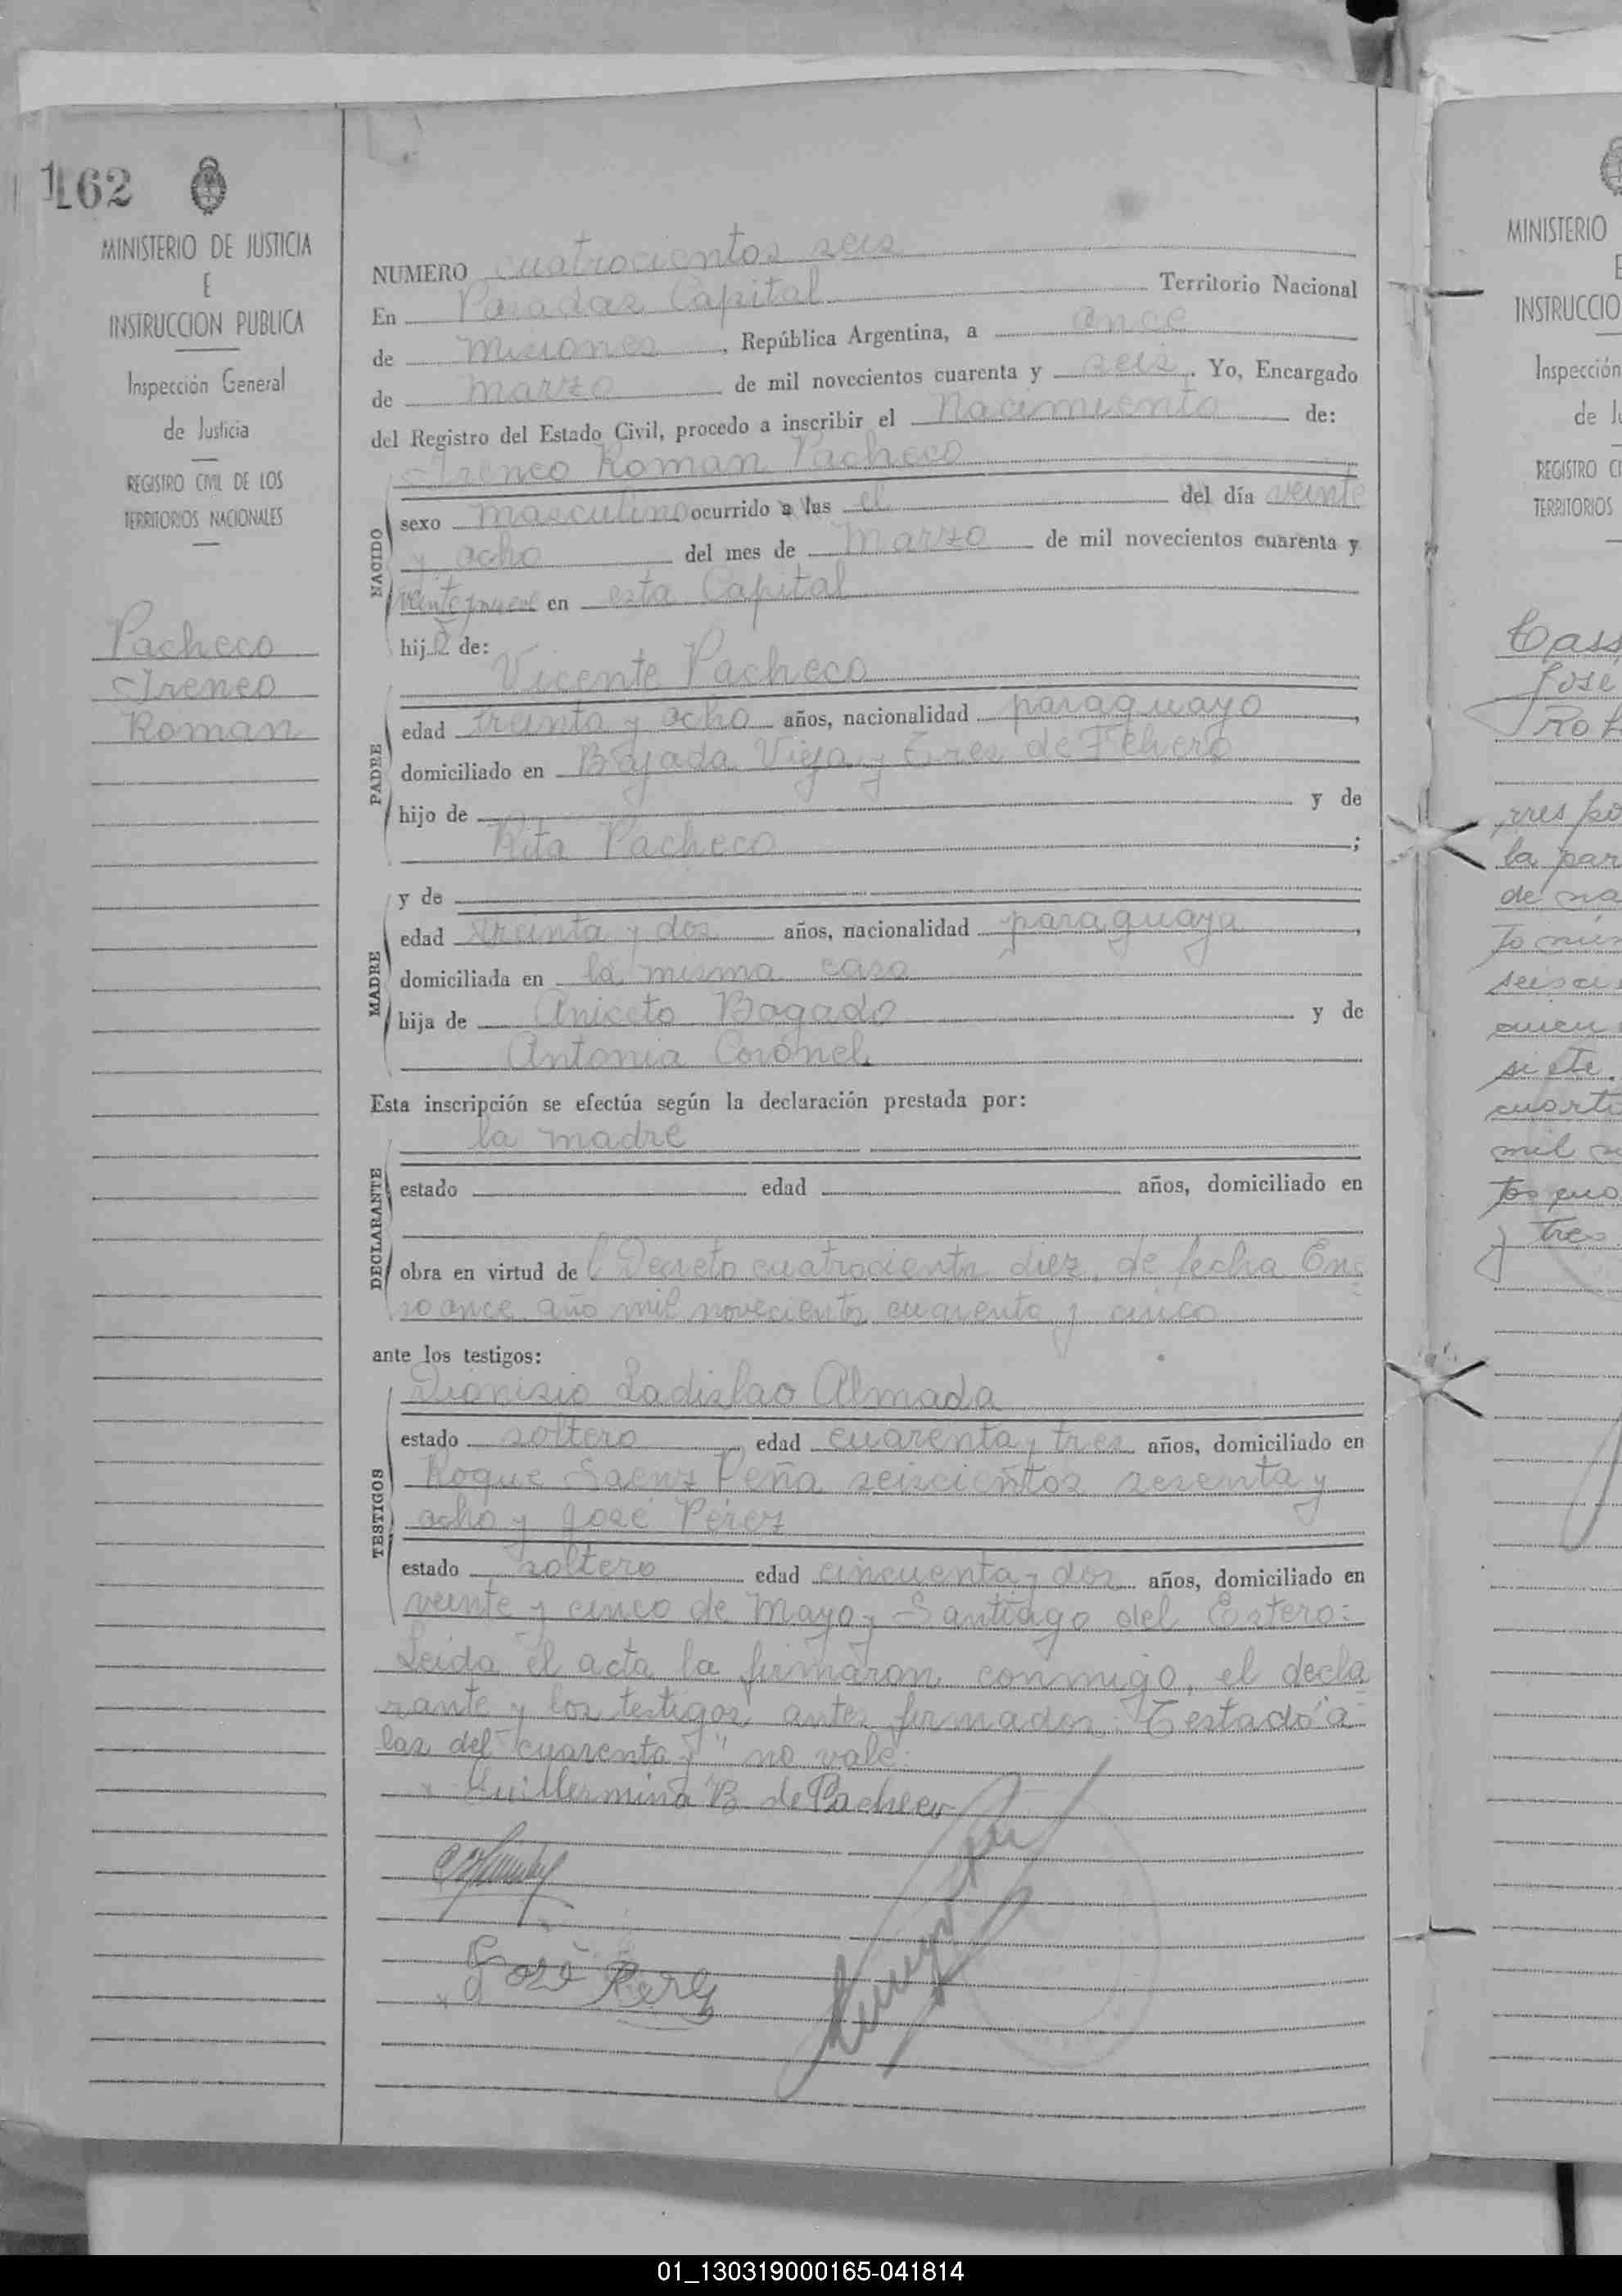 162
MINISTERIO DE JUSTICIA
E
INSTRUCCION PUBLICA
Inspección General
de Justicia
REGISTRO CIVIL DE LOS
TERRITORIOS NACIONALES
Pacheco
Ireneo
Roman
NUMERO cuatrocientos seis
En Posadas Capital Territorio Nacional
de Misiones, República Argentina, a once
de Marzo de mil novecientos cuarenta y seis. Yo, Encargado
del Registro del Estado Civil, procedo a inscribir el Nacimiento de:
Ireneo Roman Pacheco
NACIDO
sexo masculino ocurrido a las el del día veinte
y ocho del mes de Marzo de mil novecientos cuarenta y
veinte y nueve en esta Capital
hijo de:
Vicente Pacheco
PADRE
edad treinta y ocho años, nacionalidad paraguayo,
domiciliado en Bajada Vieja y Tres de Febrero
hijo de y de
Rita Pacheco ;
y de
MADRE
edad treinta y dos años, nacionalidad paraguaya,
domiciliada en la misma casa
hija de Aniceto Bogado y de
Antonia Coronel
Esta inscripción se efectúa según la declaración prestada por:
la madre
DECLARANTE
estado edad años, domiciliado en
obra en virtud de l Decreto cuatrociento diez, de fecha Ene
ro once, año mil novecientos cuarenta y cinco
ante los testigos:
Dionisio Ladislao Almada
TESTIGOS
estado soltero edad cuarenta y tres años, domiciliado en
Roque Saenz Peña seiscientos sesenta y
ocho y José Pérez
estado soltero edad cincuenta y dos años, domiciliado en
veinte y cinco de Mayo y Santiago del Estero:
Leida el acta la firmaron conmigo, el decla
rante y los testigos antes firmados: Testado "a
las del cuarenta y" no vale:
x Guillermina B. de Pacheco
x José Perez
MINISTERIO
INSTRUCCIO
Inspección
de Ju
REGISTRO CI
TERRITORIOS
Jose
la par
de na
siete.
mil
y tres
01_130319000165-041814